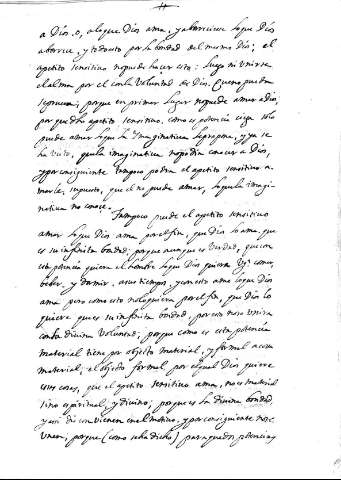 a Dios, o, a lo que Dios ama, y aborrecer lo que Dios
aborrece, y todo esto por la bondad del mismo Dios; el
apetito sensitivo no puede hacer esto: luego ni unirse
el alma por el con la Voluntad de Dios. Que no pueda
porque en primer lugar no puede amar a dios,
porque el apetito sensitivo, como es potencia ciega solo
puede amar lo que la Ymaginativa le propone, y ya se
ha visto, que la imaginativa no podia conocer a Dios,
y por consiguiente tampoco podra el apetito sensitivo a-
marle, supuesto, que el no puede amar, lo que la imagi-
nativa no conoce.
Tampoco puede el apetito sensitivo
amar lo que Dios ama por el fin, que dios lo ama, que
es su infinita bondad; porque aunque es verdad, que con
esta potencia quiere el hombre lo que Dios quiere, Vg. comer,
beber, y dormir, a sus tiempos, y con esto ama lo que Dios
ama pero como esto no lo quiere por el fin, que Dios lo
quiere que es su infinita bondad, por eso no se unira
con la divina Voluntad; porque como es esta potencia
material tiene por objecto material, y formal a cosa
material; el objecto formal por el qual Dios quiere
esas cosas, que el apetito sensitivo ama, no es material
sino espiritual, y divino; porque es la divina bondad,
y assi no convienen en el motivo, y por consiguiente no se
unen; porque (como se ha dicho) para que dos potencias